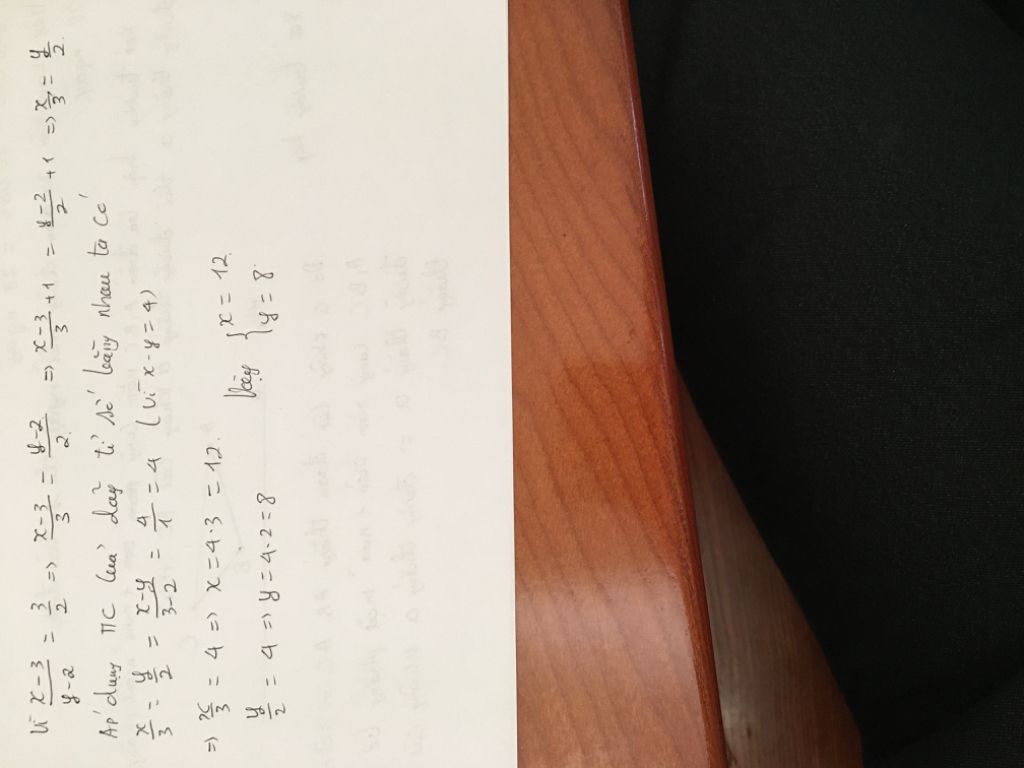 Vì \frac{x-3}{y-2} = \frac{3}{2} => \frac{x-3}{3} = \frac{y-2}{2} => \frac{x-3}{3} + 1 = \frac{y-2}{2} + 1 => \frac{x}{3} = \frac{y}{2}.
Áp dụng TC của dãy tỉ số bằng nhau ta có
\frac{x}{3} = \frac{y}{2} = \frac{x-y}{3-2} = \frac{4}{1} = 4 (Vì x-y=4)
=> \frac{x}{3} = 4 => x = 4·3 = 12.
\frac{y}{2} = 4 => y = 4·2 = 8
Vậy { x = 12
y = 8.